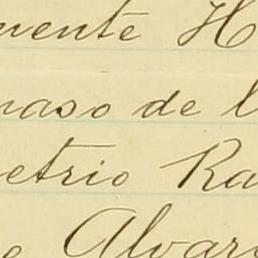 uente H
maso de l
etrio Ra
e Alvar